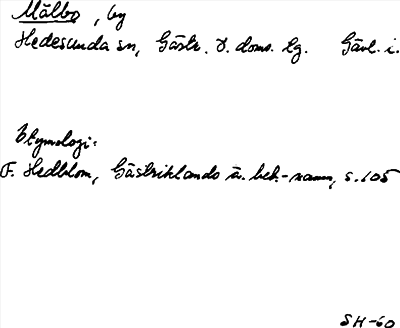 Målbo, by
Hedesunda sn, Gästr. ö. doms. tg. Gävl. l.
Etymologi:
F. Hedblom, Gästriklands ä. beb.-namn, s. 105
SH-60